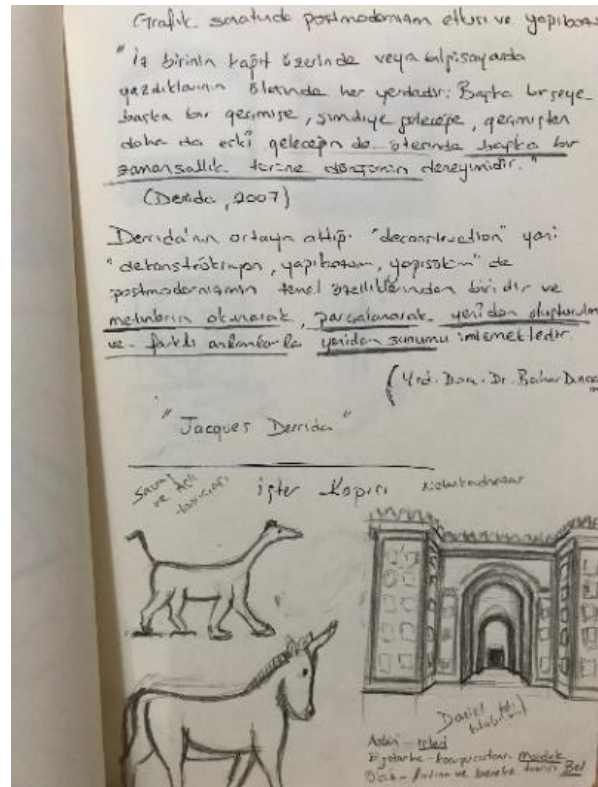 Grafik sanatında postmodernizm etkisi ve yapıbozum
"İz birinin kağıt üzerinde veya bilgisayarda
yazdıklarının ötesinde her yerdedir: Başka bir şeye
başka bir geçmişe, şimdiye geleceğe, geçmişten
daha da eski geleceğin de ötesinde başka bir
zamansallık türüne dönüşümün deneyimidir."
(Derida, 2007)
Derrida'nın ortaya attığı "deconstruction" yani
"dekonstrüksiyon, yapıbozum, yapısöküm" de
postmodernizmin temel özelliklerinden biridir ve
metinlerin okunarak, parçalanarak yeniden oluşturulm
ve farklı anlamlarla yeniden sunumu imlemektedir
(Yrd. Doç. Dr. Bahar
"Jacques Derrida"
Savaş ve Aşk
İşter Kapısı
Daniel
Adad
Ejderha - koruyucuları Marduk
ve bereket tanrısı Bel